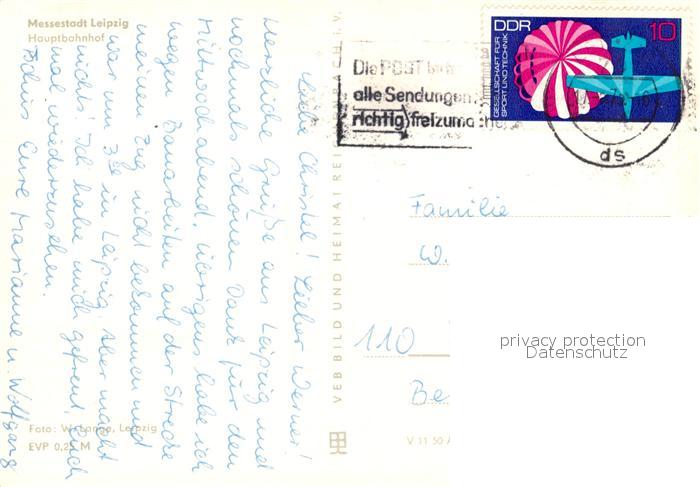 Messestadt Leipzig
Hauptbahnhof
Liebe Christel! Lieber Werner!
Herzliche Grüße aus Leipzig und
nochmals schönen Dank für den
Mittwochabend. Übrigens habe ich
wegen Bauarbeiten auf der Strecke
meinen Zug nicht bekommen und
war um 3 in Leipzig. Aber macht
nichts! Ich habe mich gefreut, Euch
mal wiederzusehen.
Eure Marianne u. Wolfgang
Foto: W. Lange, Leipzig
EVP 0,25 M
VEB BILD UND HEIMAT REICHENBACH I. V.
V 11 50
Die POST
alle Sendungen
richtig freizumachen
DDR
10
GESELLSCHAFT FÜR
SPORT UND TECHNIK
ds
Familie
W.
110
Be
privacy protection
Datenschutz